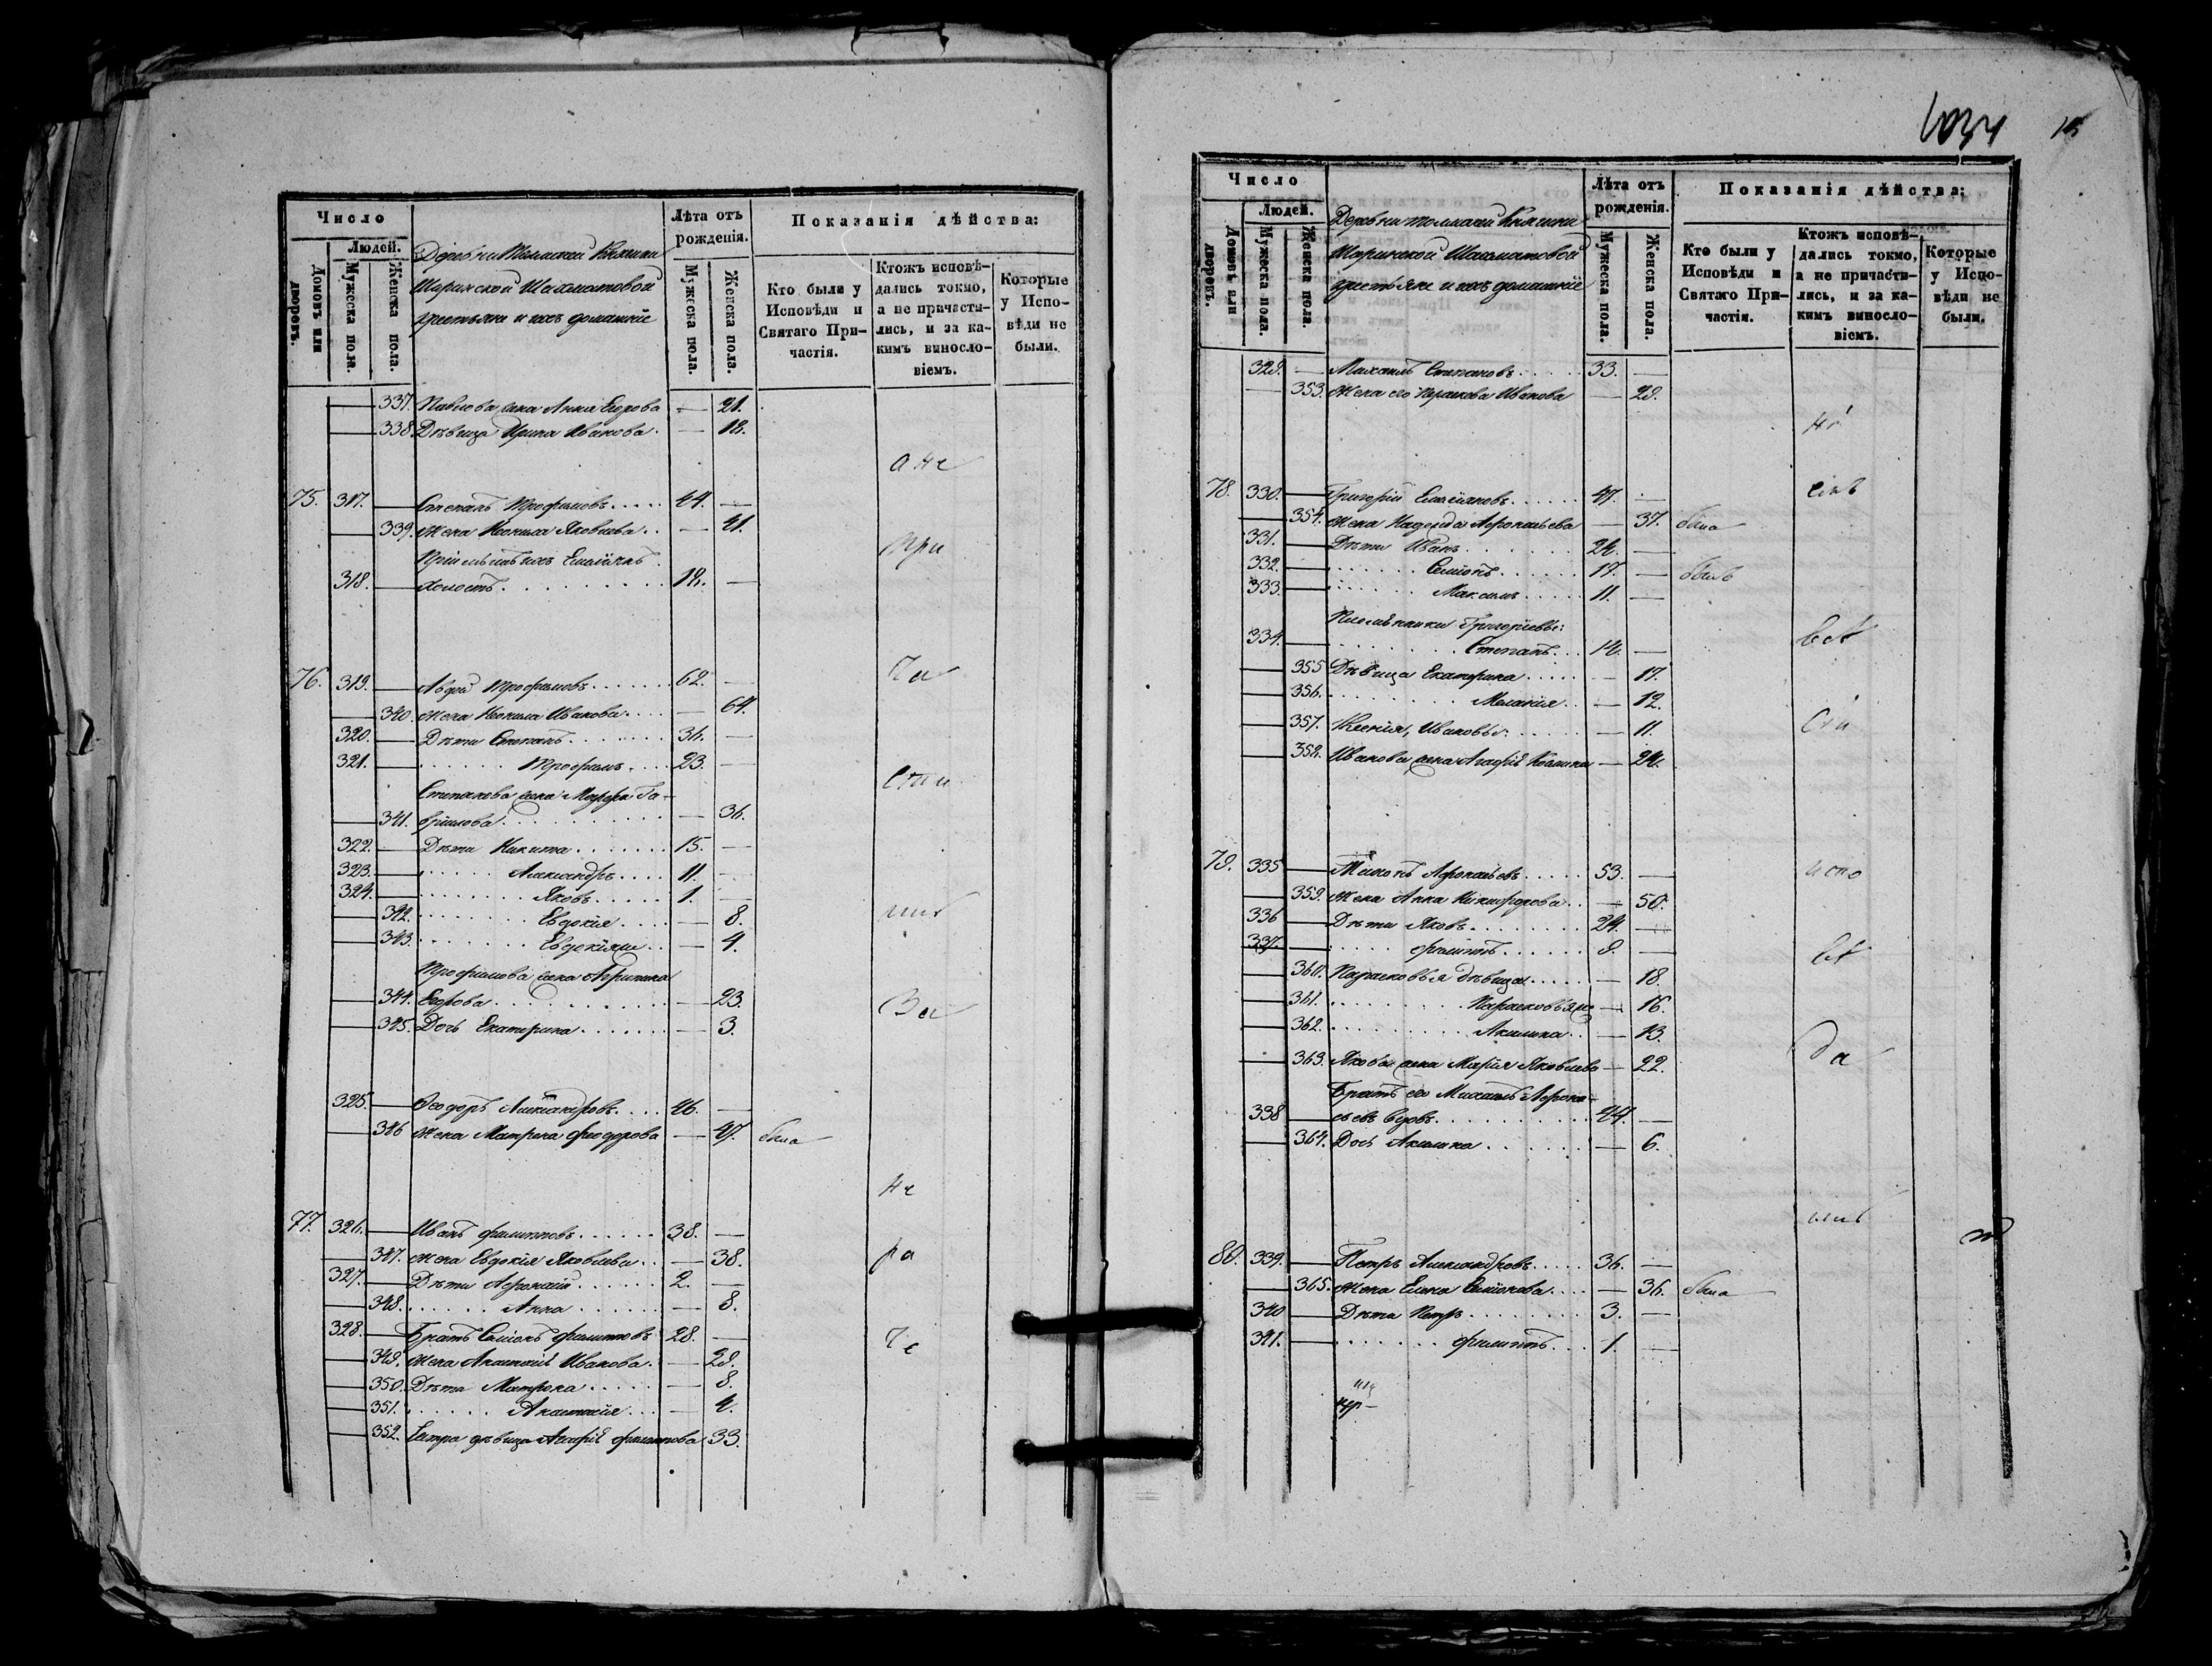 Число
Людей.
Домовъ или дворовъ.
Мужеска пола.
Женска пола.
Деревни Княгини
Ширинской Шахматовой
крестьяне и ихъ домашніе
Лѣта отъ рожденія.
Мужеска пола.
Женска пола.
Показанія дѣйства:
Кто были у Исповѣди и Святаго Причастія.
Ктожъ исповѣ-
дались токмо,
а не причасти-
лись, и за ка-
кимъ виносло-
віемъ.
Которые
у Испо-
вѣди не
были.
337. Павлова жена Анна Егорова — 21.
338. Дѣвица Ирина Иванова. — 18.
75. 317. — Степанъ Трофимовъ 44. —
339. Жена Неонила Яковлева — 41.
318. — холостъ 18. —
при
76. 319. — Трофимовъ 62. —
ча
340. Жена Неонила Иванова — 64.
320. — Дѣти Степанъ 36. —
321. — Трофимъ 23. —
сти
Степанова жена Марфа Га-
341. врилова — 36.
322. — Дѣти Никита 15. —
323. — Александръ 11. —
324. — Яковъ 1. —
342. Евдокія — 8.
343. Евдокія — 4.
Трофимова жена Агрипина
344. Егорова — 23.
За
345. Дочь Екатерина — 3.
325. — Ѳеодоръ Александровъ 46. —
346 Жена Матрена Феодорова — 47. была
не
77. 326. — Иванъ Филиповъ 38. —
347. Жена Евдокія Яковлева — 38.
ра
327. — Дѣти Афонасій 2. —
348. Анна — 8.
328. — Братъ Семіонъ Филиповъ 28. —
349. Жена Анастасія Иванова — 29.
350. Дѣти Матрона — 8.
351. Анастасія — 4.
352. Сестра дѣвица Агафія Филипова 33.
Число
Людей.
Домовъ или дворовъ.
Мужеска пола.
Женска пола.
Деревни Княгини
Ширинской Шахматовой
крестьяне и ихъ домашніе
Лѣта отъ рожденія.
Мужеска пола.
Женска пола.
Показанія дѣйства:
Кто были у
Исповѣди и
Святаго При-
частія.
Ктожъ исповѣ-
дались токмо,
а не причасти-
лись, и за ка-
кимъ виносло-
віемъ.
Которые
у Испо-
вѣди не
были.
329. — Михаилъ Степановъ 33. —
353. Жена его Прасковья Иванова — 29.
78. 330. — Григорій Емельяновъ 47. —
354. Жена Надежда Афонасьева — 37. была
331. — Дѣти Иванъ 24. —
332. — Семіонъ 17. — былъ
333. — Максимъ 11. —
Племянники Григорьевы:
334. — Степанъ 14. —
355 Дѣвица Екатерина — 17.
356. Меланія — 12.
357. Ксенія, Ивановы — 11.
358. Иванова жена Агафія — 24.
79. 335 — Афонасьевъ 53. —
испо
359. Жена Анна Никифорова — 50.
336 — Дѣти Яковъ 24. —
337. — Филипъ 9. —
360. Парасковья дѣвица — 18.
361. Парасковья же — 16.
362. Акилина — 13.
да
363. Якова жена Марія Яковлева — 22.
Братъ его Михаилъ Афона-
338 — сьевъ вдовъ 44. —
364. Дочь Акилина — 6.
80. 339. — Петръ Александровъ 36. —
365. Жена Елена Семіонова — 36. была
340 — Дѣти Петръ 3. —
341. — Филипъ 1. —